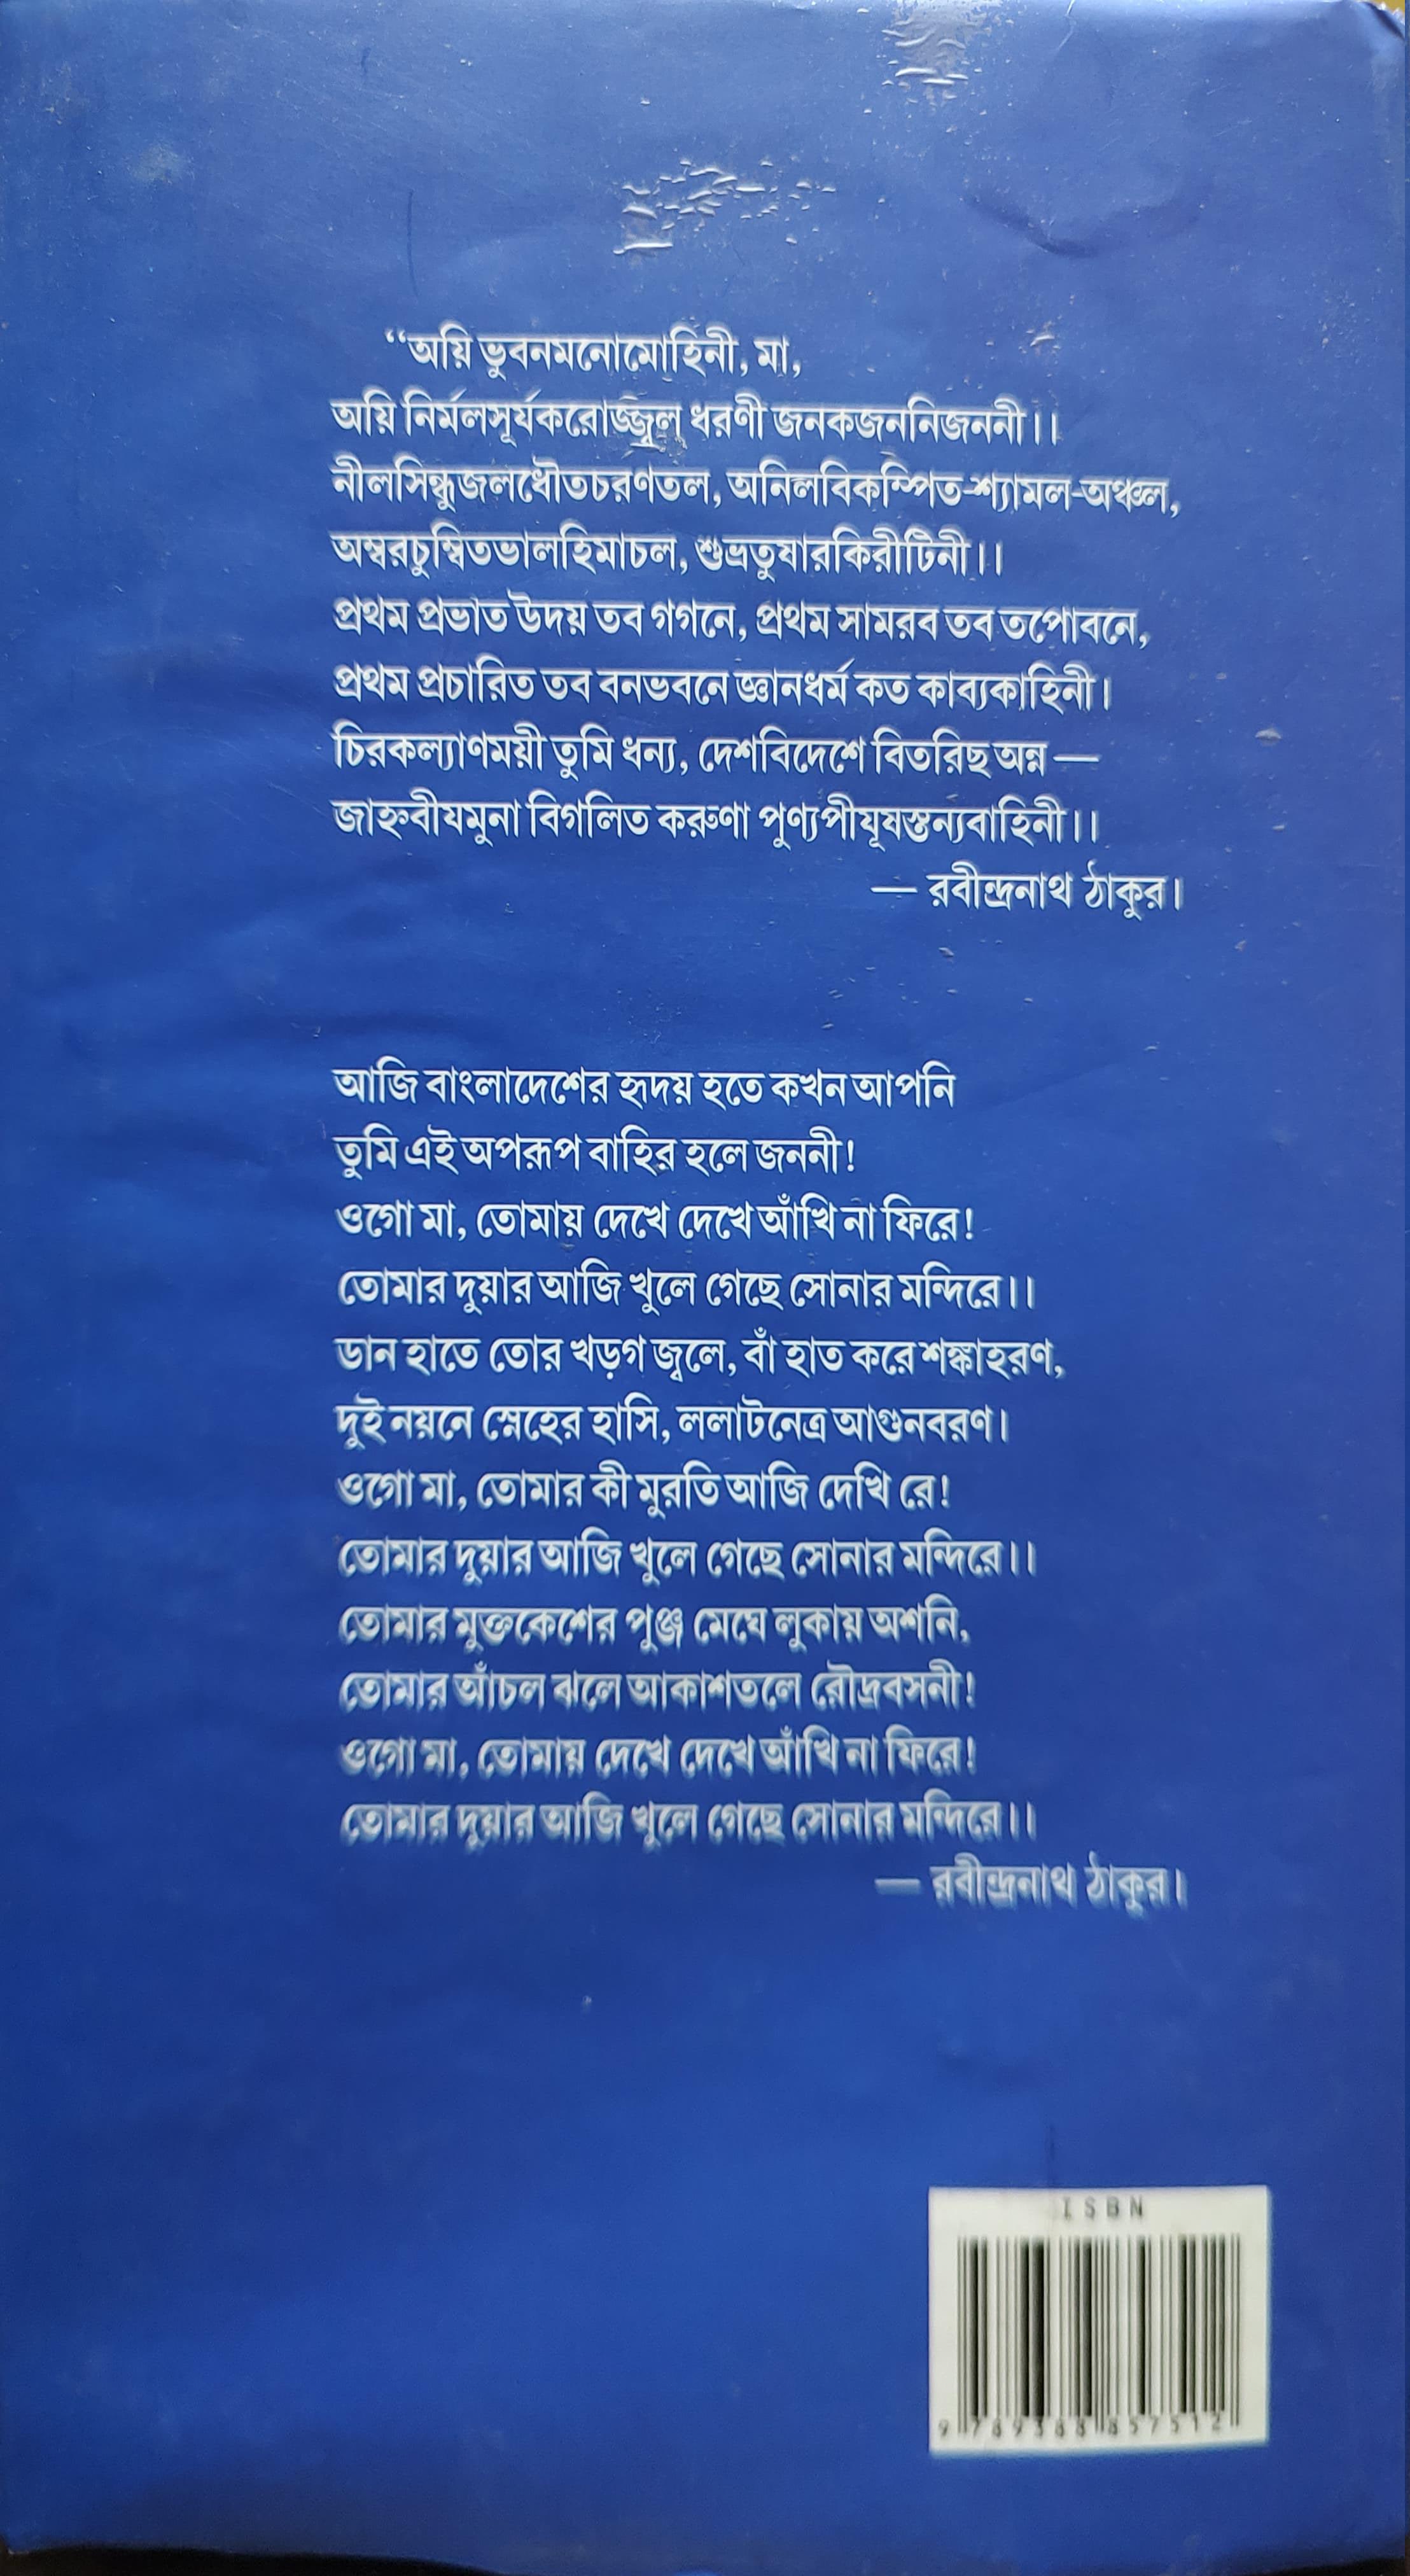 “অয়ি ভুবনমনোমোহিনী, মা,
অয়ি নির্মলসূর্যকরোজ্জ্বল ধরণী জনকজননিজননী।।
নীলসিন্ধুজলধৌতচরণতল, অনিলবিকম্পিত-শ্যামল-অঞ্চল,
অম্বরচুম্বিতভালহিমাচল, শুভ্রতুষারকিরীটিনী।।
প্রথম প্রভাত উদয় তব গগনে, প্রথম সামরব তব তপোবনে,
প্রথম প্রচারিত তব বনভবনে জ্ঞানধর্ম কত কাব্যকাহিনী।
চিরকল্যাণময়ী তুমি ধন্য, দেশবিদেশে বিতরিছ অন্ন —
জাহ্নবীযমুনা বিগলিত করুণা পুণ্যপীযূষস্তন্যবাহিনী।।
— রবীন্দ্রনাথ ঠাকুর।
আজি বাংলাদেশের হৃদয় হতে কখন আপনি
তুমি এই অপরূপ বাহির হলে জননী!
ওগো মা, তোমায় দেখে দেখে আঁখি না ফিরে!
তোমার দুয়ার আজি খুলে গেছে সোনার মন্দিরে।।
ডান হাতে তোর খড়গ জ্বলে, বাঁ হাত করে শঙ্কাহরণ,
দুই নয়নে স্নেহের হাসি, ললাটনেত্র আগুনবরণ।
ওগো মা, তোমার কী মুরতি আজি দেখি রে!
তোমার দুয়ার আজি খুলে গেছে সোনার মন্দিরে।।
তোমার মুক্তকেশের পুঞ্জ মেঘে লুকায় অশনি,
তোমার আঁচল ঝলে আকাশতলে রৌদ্রবসনী!
ওগো মা, তোমায় দেখে দেখে আঁখি না ফিরে!
তোমার দুয়ার আজি খুলে গেছে সোনার মন্দিরে।।
— রবীন্দ্রনাথ ঠাকুর।
ISBN
9 789388 857512